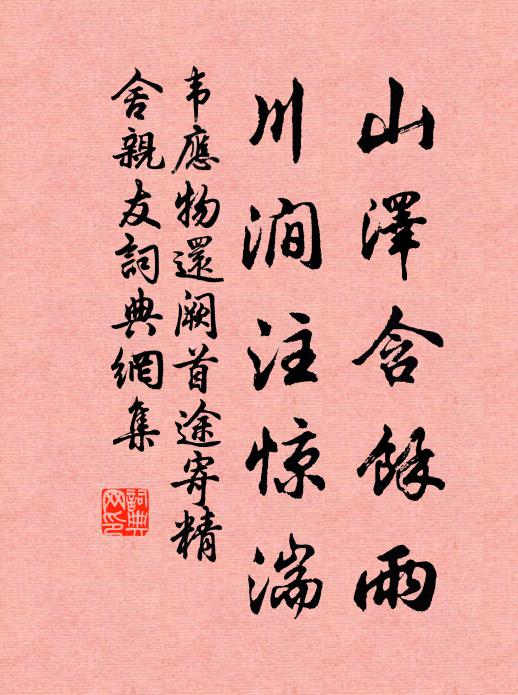 山澤含餘雨
川澗注惊湍
韦應物還阙首途寄精
舍親友詞典網集
詞典
网印